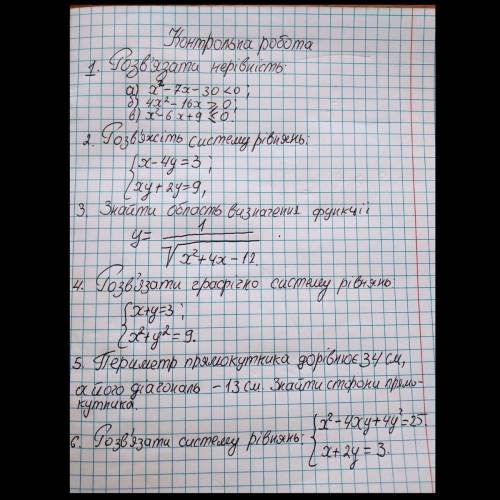 Контрольна робота
1. Розв'язати нерівність:
а) x²-7x-30<0;
б) 4x²-16x≥0;
в) x²-6x+9≤0.
2. Розв'яжіть систему рівнянь:
{x-4y=3;
{xy+2y=9,
3. Знайти область визначення функції
y= 1/√(x²+4x-12) .
4. Розв'язати графічно систему рівнянь:
{x+y=3;
{x²+y²=9.
5. Периметр прямокутника дорівнює 34 см,
а його діагональ - 13 см. Знайти сторони прямо-
кутника.
6. Розв'язати систему рівнянь: {x²-4xy+4y²=25
{x+2y=3.